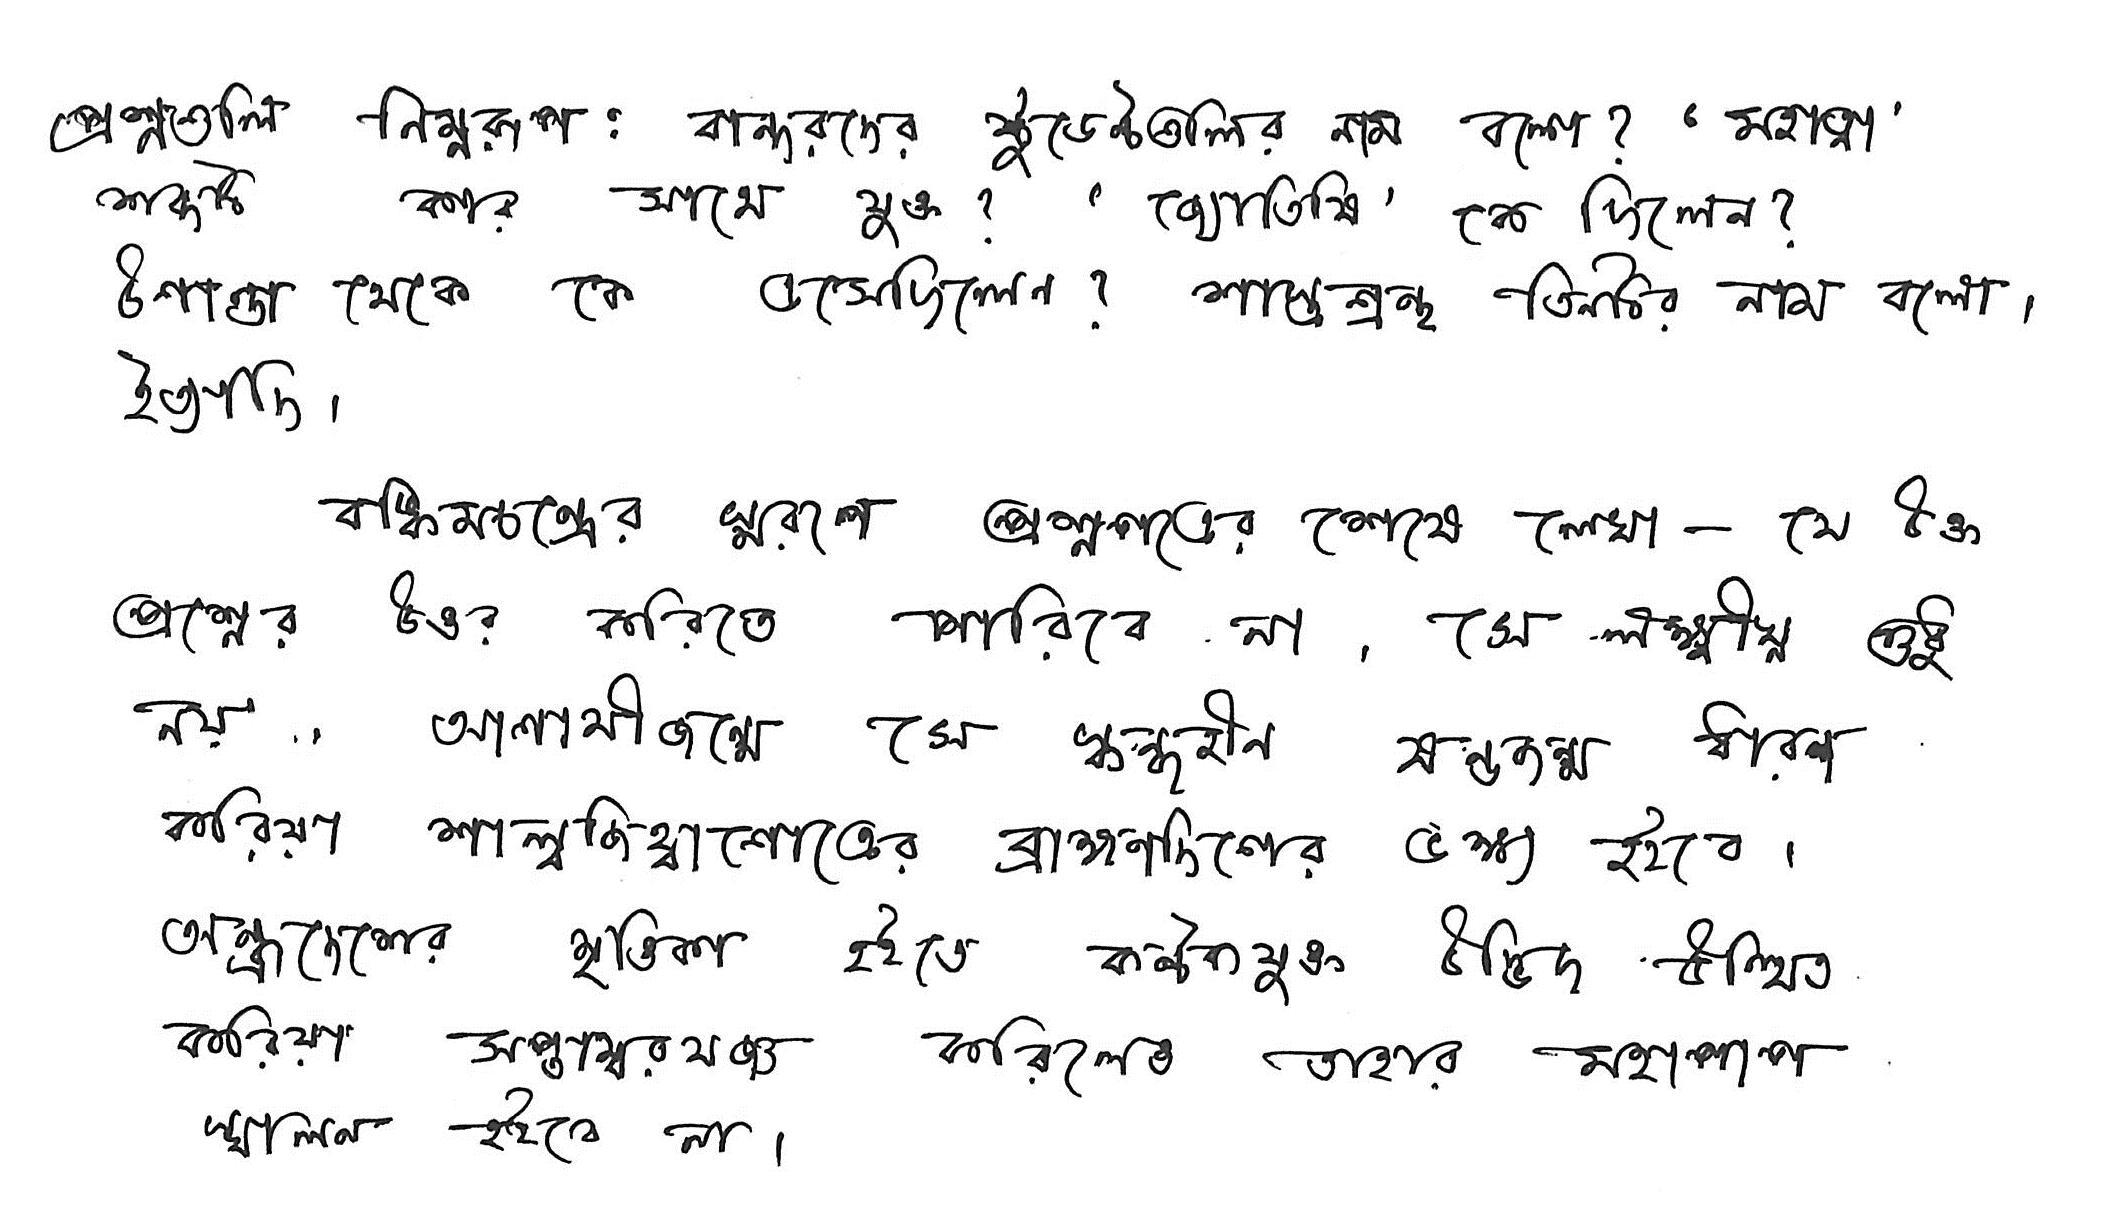 প্রশ্নগুলি নিম্নরূপ: বান্দরদের স্টুডেন্টগুলির নাম বলো? 'মহাত্মা'
শব্দটি কার সাথে যুক্ত? 'জ্যোতিষি' কে ছিলেন?
উগান্ডা থেকে কে এসেছিলেন? শাস্ত্রগ্রন্থ তিনটির নাম বলো।
ইত্যাদি।
বঙ্কিমচন্দ্রের স্মরণে প্রশ্নপত্রের শেষে লেখা – যে উক্ত
প্রশ্নের উত্তর করিতে পারিবে না, সে লক্ষ্মীঘ্ন শুধু
নয়.. আগামীজন্মে সে স্কন্ধহীন ষন্ডজন্ম ধারণ
করিয়া শাল্বজিহ্বাগোত্রের ব্রাহ্মণদিগের ভক্ষ্য হইবে।
অন্ধ্রদেশের মৃত্তিকা হইতে কন্টকযুক্ত উদ্ভিদ উত্থিত
করিয়া সপ্তাম্বরযজ্ঞ করিলেও তাহার মহাপাপ
স্খালন হইবে না।